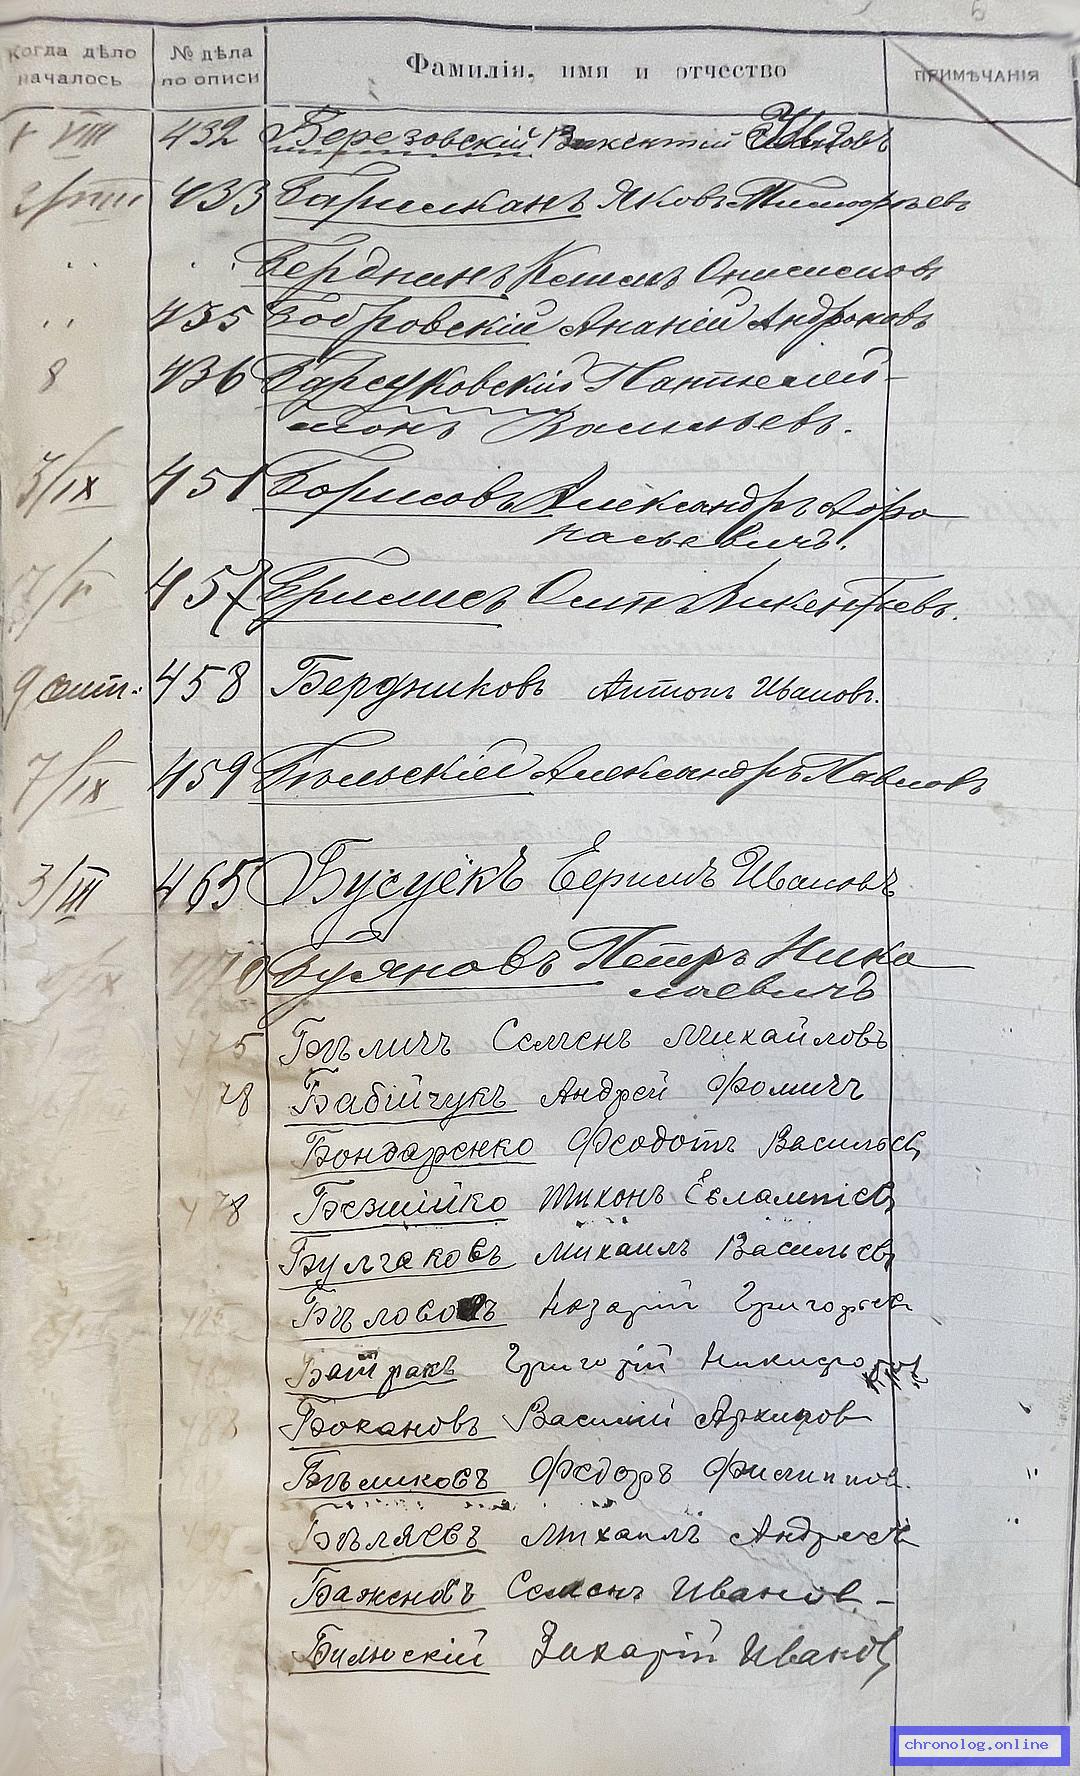 6
Когда дѣло началось № дѣла по описи Фамилія, имя и отчество ПРИМѢЧАНІЯ
VIII 432 Березовскій Викентій Ивановъ
433 Яковъ Тимофѣевъ
Онисимовъ
435 Бобровскій Ананій Андроновъ
8 436 Барсуковскій Пантелей-
монъ Васильевъ.
3/IX 451 Борисовъ Александръ Афа
насьевичъ.
457 Осипъ Викентьевъ.
9 458 Бердниковъ Антонъ Ивановъ.
7/IX 459 Бѣльскій Александръ Павловъ
3/III 465 Бусуекъ Ивановъ
Буяновъ Петръ Нико
лаевичъ
475 Бѣличъ Семенъ Михайловъ
78 Бабійчукъ Андрей Фомичъ
Бондаренко Феодотъ Васильев
478 Тихонъ Евлампіев
Булгаковъ Михаилъ Васильев
Назарій Григорьев
Батракъ Григорій
Бокановъ Василій Архипов
Федоръ Филиппов.
Бѣляевъ Михаилъ Андреев
Баженовъ Семенъ Иванов.
Захарій Иванов
chronolog.online